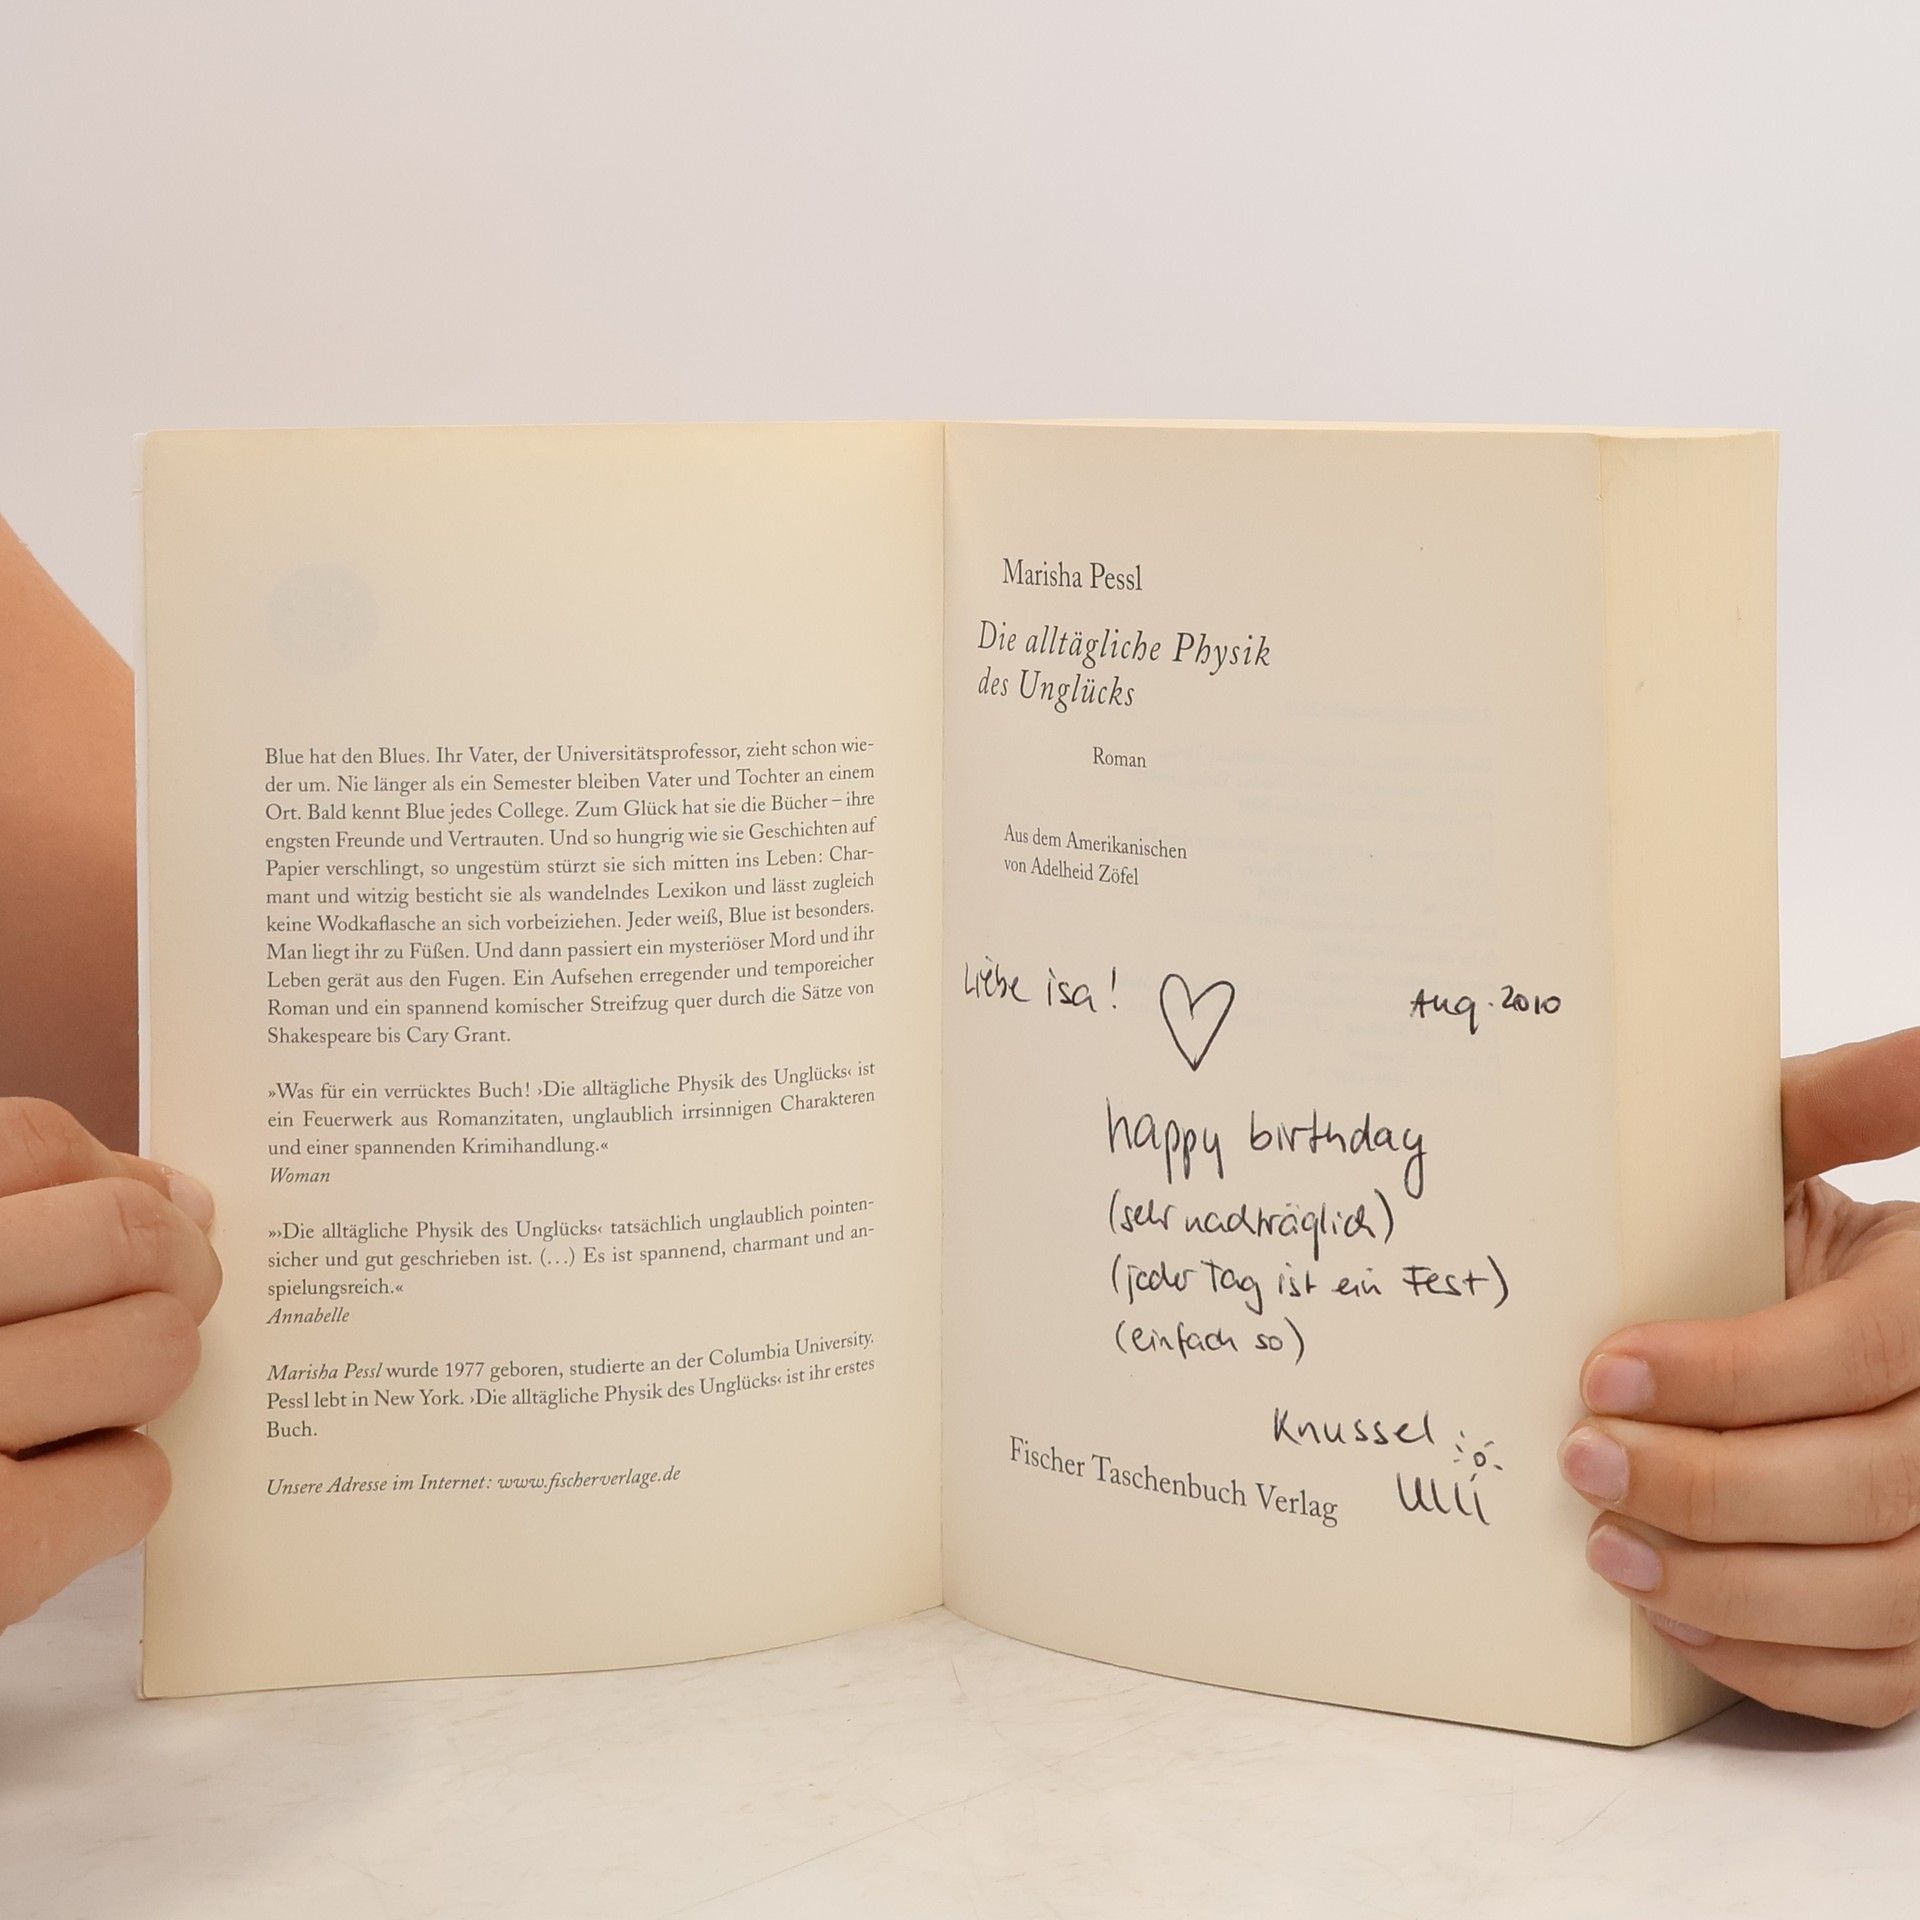 Blue hat den Blues. Ihr Vater, der Universitätsprofessor, zieht schon wie-
der um. Nie länger als ein Semester bleiben Vater und Tochter an einem
Ort. Bald kennt Blue jedes College. Zum Glück hat sie die Bücher – ihre
engsten Freunde und Vertrauten. Und so hungrig wie sie Geschichten auf
Papier verschlingt, so ungestüm stürzt sie sich mitten ins Leben: Char-
mant und witzig besticht sie als wandelndes Lexikon und lässt zugleich
keine Wodkaflasche an sich vorbeiziehen. Jeder weiß, Blue ist besonders.
Man liegt ihr zu Füßen. Und dann passiert ein mysteriöser Mord und ihr
Leben gerät aus den Fugen. Ein Aufsehen erregender und temporeicher
Roman und ein spannend komischer Streifzug quer durch die Sätze von
Shakespeare bis Cary Grant.
»Was für ein verrücktes Buch! ›Die alltägliche Physik des Unglücks‹ ist
ein Feuerwerk aus Romanzitaten, unglaublich irrsinnigen Charakteren
und einer spannenden Krimihandlung.«
Woman
»›Die alltägliche Physik des Unglücks‹ tatsächlich unglaublich pointen-
sicher und gut geschrieben ist. (…) Es ist spannend, charmant und an-
spielungsreich.«
Annabelle
Marisha Pessl wurde 1977 geboren, studierte an der Columbia University.
Pessl lebt in New York. ›Die alltägliche Physik des Unglücks‹ ist ihr erstes
Buch.
Unsere Adresse im Internet: www.fischerverlage.de
Marisha Pessl
Die alltägliche Physik
des Unglücks
Roman
Aus dem Amerikanischen
von Adelheid Zöfel
Liebe isa! Aug. 2010
happy birthday
(sehr nachträglich)
(jeder Tag ist ein Fest)
(einfach so)
Knussel
Fischer Taschenbuch Verlag